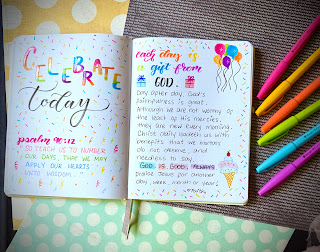 CELEBRATE
Today
psalm 90:12
"SO TEACH US TO NUMBER
OUR DAYS, THAT WE MAY
APPLY OUR HEARTS
UNTO WISDOM."
each day is
a gift from
GOD.
Day after day, God's
faithfulness is great.
Although we are not worthy of
the least of His mercies,
they are new every morning.
Christ daily loadeth us with
benefits that we mortals
do not deserve, and
needless to say,
GOD IS GOOD, Always
praise Jesus for another
day, week, month or year!